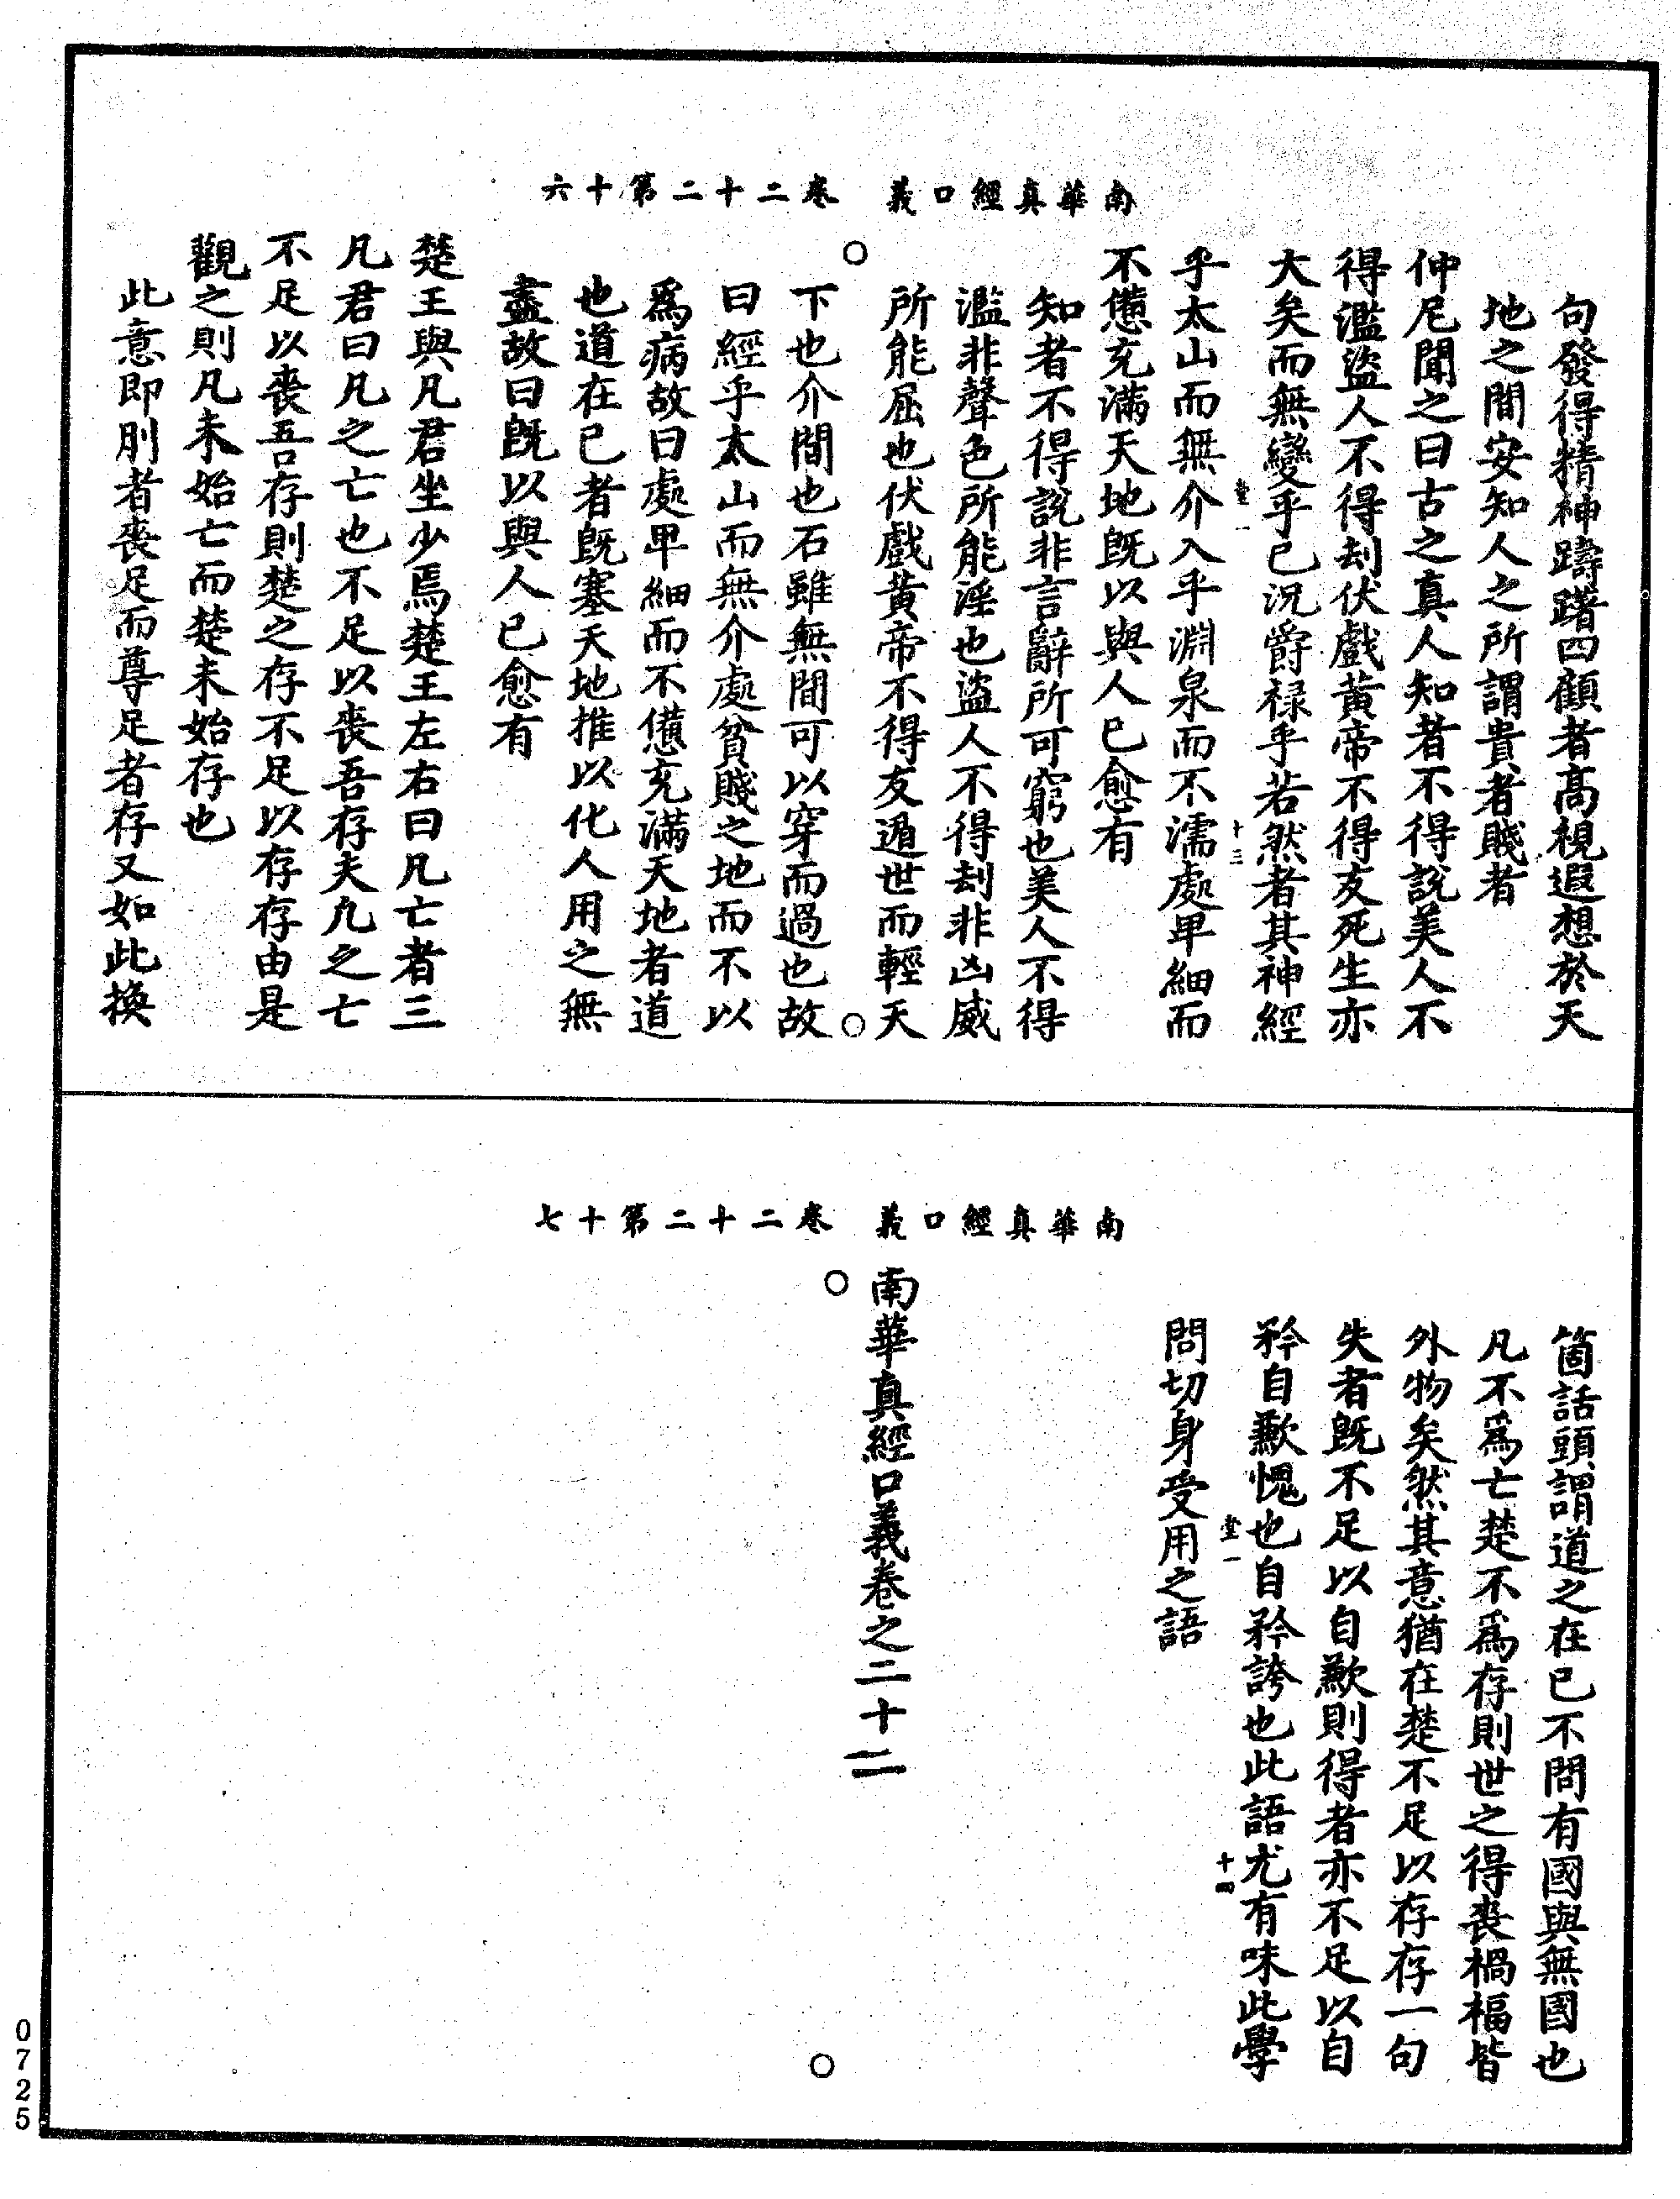 南華真經口義　卷二十二第十六
句發得精神躊躇四顧者高視遐想於天
地之間安知人之所謂貴者賤者
仲尼聞之曰古之真人知者不得說美人不
得濫盜人不得刦伏戲黃帝不得友死生亦
大矣而無變乎已況爵祿乎若然者其神經
乎太山而無介入乎淵泉而不濡處卑細而
不憊充滿天地既以與人已愈有
知者不得說非言辭所可窮也美人不得
濫非聲色所能淫也盜人不得刦非凶威
所能屈也伏戲黃帝不得友遁世而輕天
下也介間也石雖無間可以穿而過也故
曰經乎太山而無介處貧賤之地而不以
爲病故曰處卑細而不憊充滿天地者道
也道在已者既塞天地推以化人用之無
盡故曰既以與人已愈有
楚王與凡君坐少焉楚王左右曰凡亡者三
凡君曰凡之亡也不足以喪吾存夫凡之亡
不足以喪吾存則楚之存不足以存存由是
觀之則凡未始亡而楚未始存也
此意即刖者喪足而尊足者存又如此換
堂一
十三
南華真經口義　卷二十二第十七
箇話頭謂道之在已不問有國與無國也
凡不爲亡楚不爲存則世之得喪禍福皆
外物矣然其意猶在楚不足以存存一句
失者既不足以自歉則得者亦不足以自
矜自歉愧也自矜誇也此語尤有味此學
問切身受用之語
堂一
十四
南華真經口義卷之二十二
0725